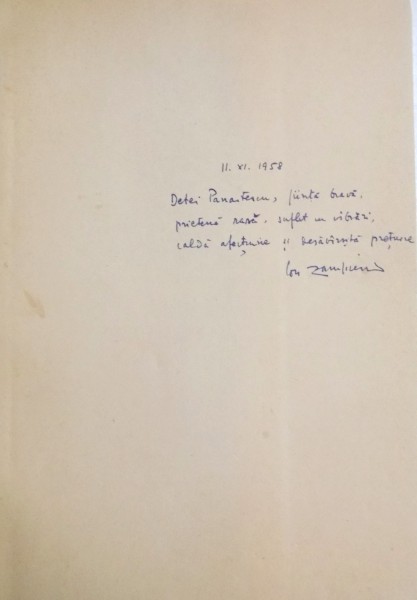 11. XI. 1958
Detei Panaitescu, ființă bravă,
prietenă rară, suflet cu vibrări,
caldă afecțiune și desăvîrșită prețuire
Ion Zamfirescu